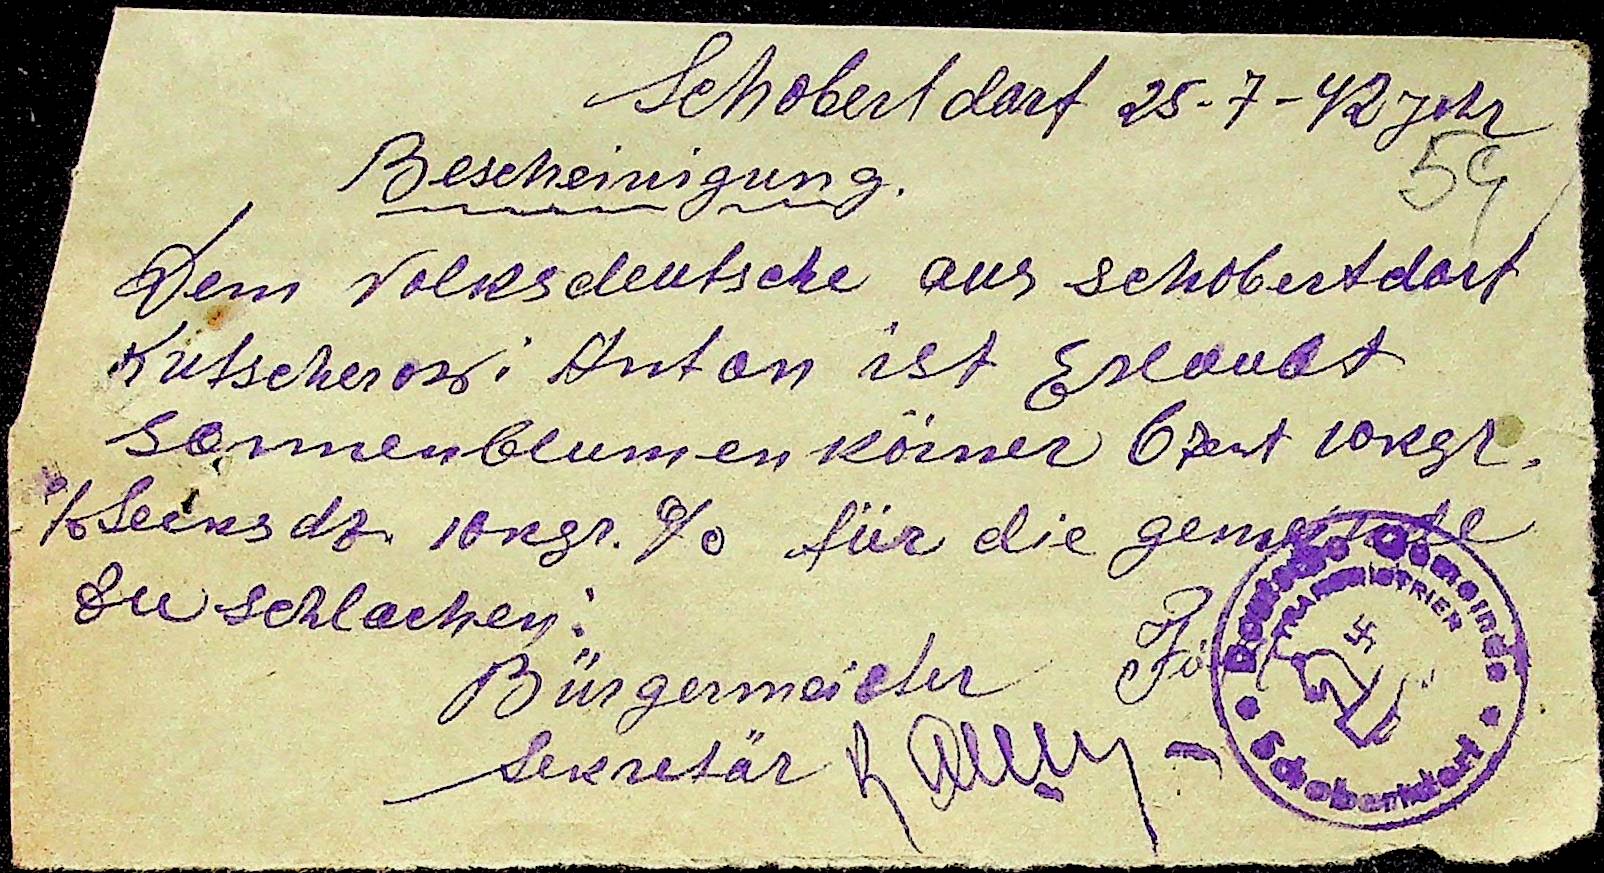 Schobertdorf 25-7-42 Johr
59
Bescheinigung.
Dem Volksdeutsche aus Schobertdorf
Kutscherowi Anton ist Erlaubt
Sonnenblumenkörner 6 Zent 10kgr.
% Secks dz. 10kgr. % für die gemeinde
zu schlachen:
Bürgermeister
Sekretär
Deutsche Gemeinde
TRANSNISTRIEN
Schobertdorf